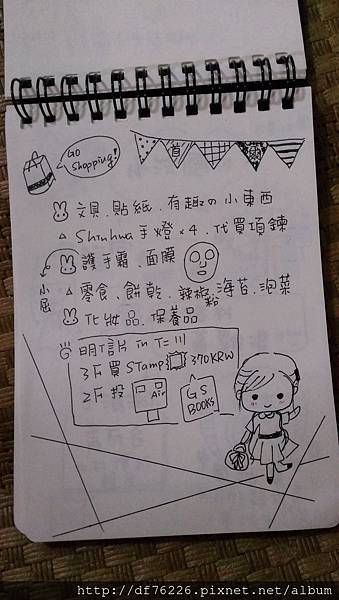 GO
Shopping!
首爾
文具.貼紙.有趣的小東西
Shinhwa手燈×4.代買項鍊
護手霜.面膜
小屈
零食、餅乾.辣椒粉.海苔.泡菜
化妝品.保養品
明信片 in 仁川
3F買STamp 370KRW
2F投 Air
GS
BOOKS
http://df76226.pixnet.net/album